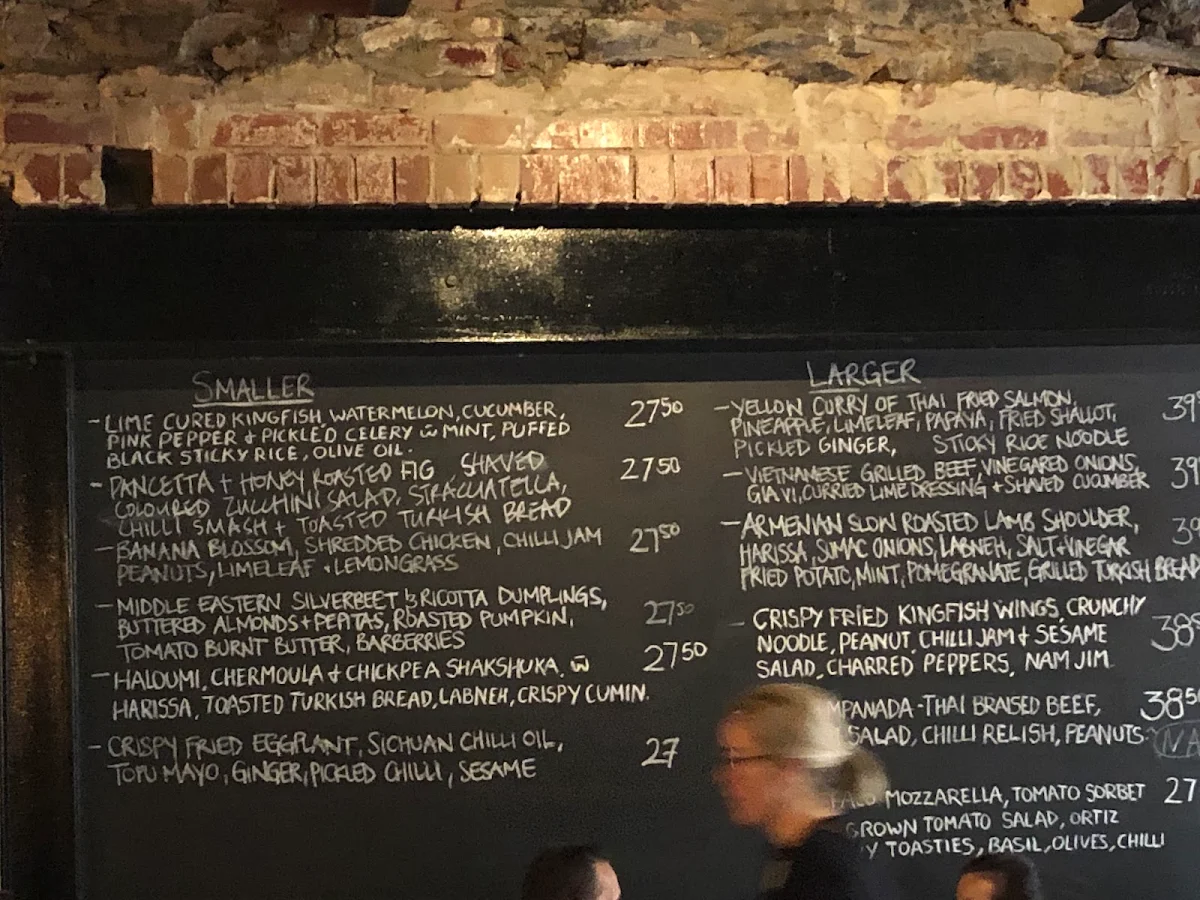 SMALLER
- LIME CURED KINGFISH, WATERMELON, CUCUMBER, 27 50
PINK PEPPER + PICKLED CELERY W MINT, PUFFED
BLACK STICKY RICE, OLIVE OIL.
- PANCETTA + HONEY ROASTED FIG SHAVED 27 50
COLOURED ZUCCHINI SALAD, STRACCIATELLA,
CHILLI SMASH + TOASTED TURKISH BREAD
- BANANA BLOSSOM, SHREDDED CHICKEN, CHILLI JAM 27 50
PEANUTS, LIMELEAF + LEMONGRASS
- MIDDLE EASTERN SILVERBEET & RICOTTA DUMPLINGS, 27 50
BUTTERED ALMONDS + PEPITAS, ROASTED PUMPKIN,
TOMATO BURNT BUTTER, BARBERRIES
- HALOUMI, CHERMOULA + CHICKPEA SHAKSHUKA, W 27 50
HARISSA, TOASTED TURKISH BREAD, LABNEH, CRISPY CUMIN.
- CRISPY FRIED EGGPLANT, SICHUAN CHILLI OIL, 27
TOFU MAYO, GINGER, PICKLED CHILLI, SESAME
LARGER
- YELLOW CURRY OF THAI FRIED SALMON, 39
PINEAPPLE, LIMELEAF, PAPAYA, FRIED SHALLOT,
PICKLED GINGER, STICKY RICE NOODLE
- VIETNAMESE GRILLED BEEF, VINEGARED ONIONS, 39
GIA VI, CURRIED LIME DRESSING + SHAVED CUCUMBER
- ARMENIAN SLOW ROASTED LAMB SHOULDER, 39
HARISSA, SUMAC ONIONS, LABNEH, SALT + VINEGAR
FRIED POTATO, MINT, POMEGRANATE, GRILLED TURKISH BREAD
- CRISPY FRIED KINGFISH WINGS, CRUNCHY 38 5
NOODLE, PEANUT, CHILLI JAM + SESAME
SALAD, CHARRED PEPPERS, NAM JIM
MPANADA - THAI BRAISED BEEF, 38 50
SALAD, CHILLI RELISH, PEANUTS
MOZZARELLA, TOMATO SORBET 27
GROWN TOMATO SALAD, ORTIZ
Y TOASTIES, BASIL, OLIVES, CHILLI